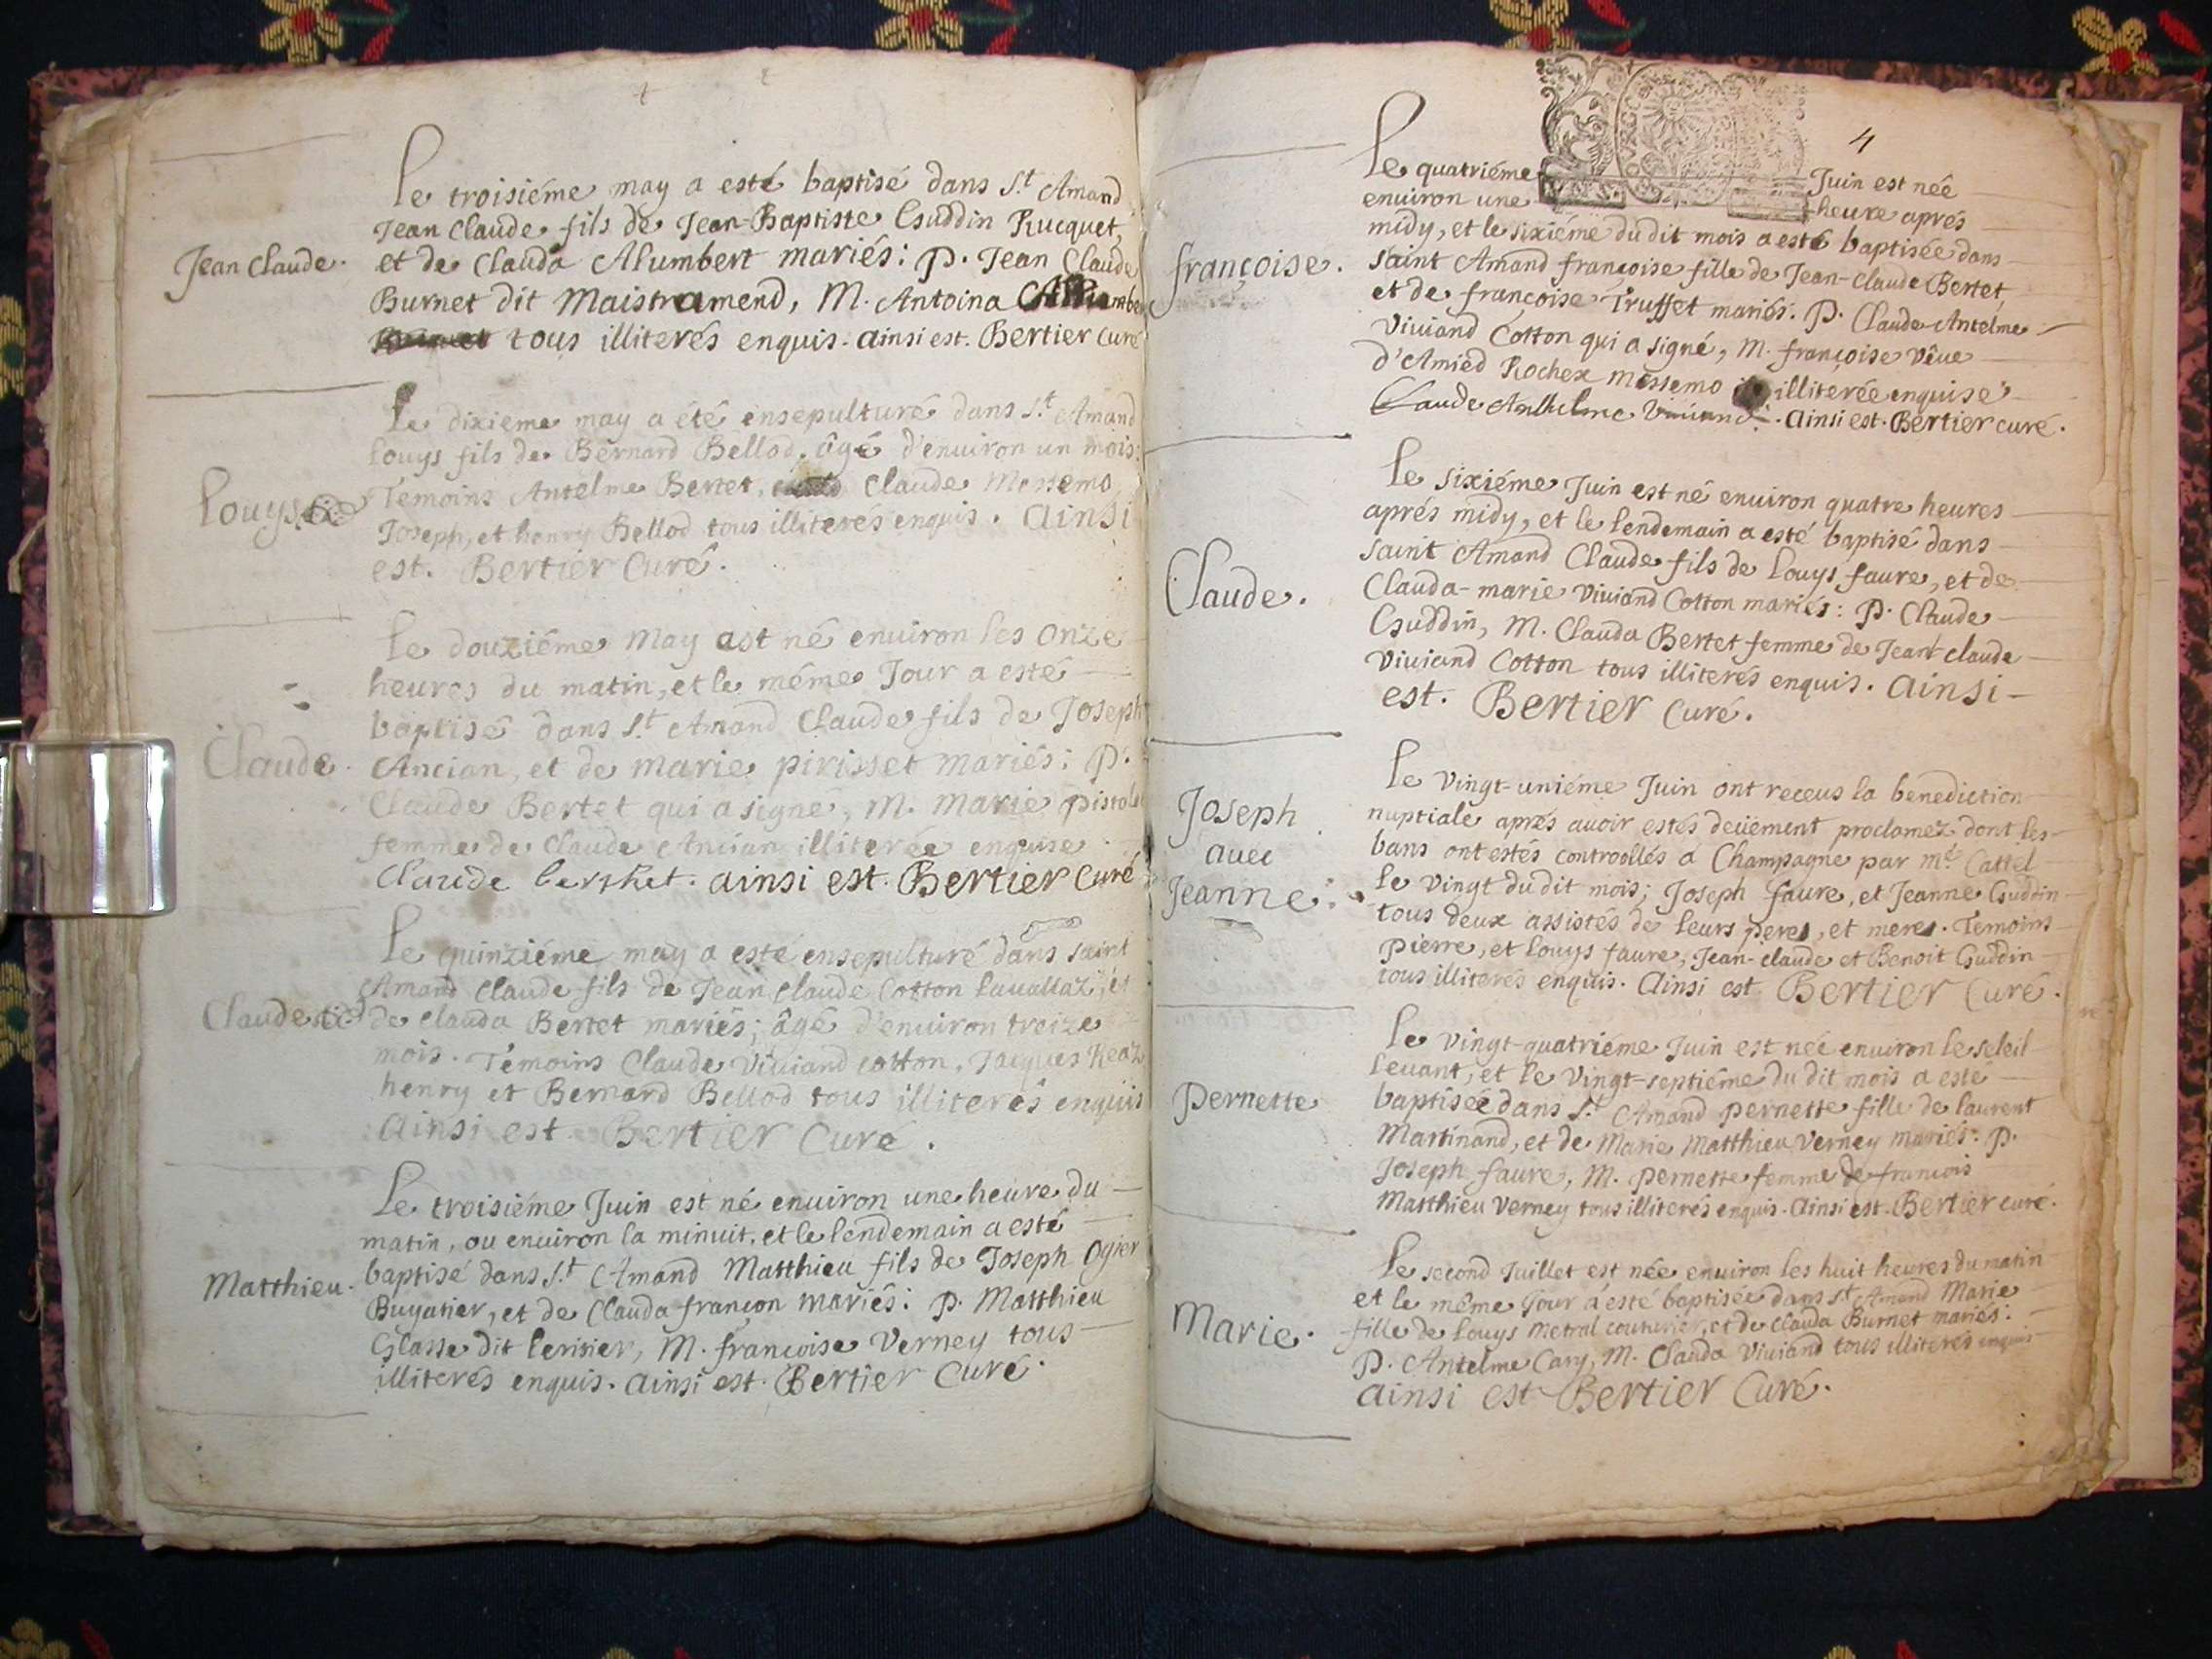 Le troisiéme may a esté baptisé dans S.t Amand
Jean Claude fils de Jean-Baptiste Guddin Rucquet,
Jean Claude. et de Clauda Alumbert mariés: P. Jean Claude
Burnet dit Maistramend, M. Antoina
tous illiterés enquis. ainsi est. Bertier Curé
Le dixieme may a été ensepulturé dans S.t Amand
Louys fils de Bernard Bellod, âgé d'enuiron un mois:
Louys Temoins Antelme Bertet, Claude Messemo
Joseph, et henry Bellod tous illiterés enquis. Ainsi
est. Bertier Curé.
Le douziéme May est né enuiron les onze
heures du matin, et le méme Jour a esté
baptisé dans S.t Amand Claude fils de Joseph
Claude. Ancian, et de marie pirisset mariés: P.
Claude Bertet qui a signé, M. Marie pistole
femme de Claude Ancian illiterée enquise.
Claude berthet. ainsi est. Bertier Curé
Le quinziéme may a esté ensepulturé dans saint
Amand Claude fils de Jean Claude Cotton Lauallaz, et
Claude de Clauda Bertet mariés; âgé d'enuiron treize
mois. Temoins Claude Viuiand cotton, Jacques Reaz
henry et Bernard Bellod tous illiterés enquis
Ainsi est. Bertier Curé.
Le troisiéme Juin est né enuiron une heure du
matin, ou enuiron la minuit, et le lendemain a esté
baptisé dans S.t Amand Matthieu fils de Joseph Ogier
Matthieu. Bugatier, et de Clauda françon mariés: P. Matthieu
Glasse dit lerisier, M. françoise Verney tous
illiterés enquis. Ainsi est. Bertier Curé.
4
Le quatriéme Juin est née
enuiron une heure aprés
midy, et le sixiéme du dit mois a esté baptisée dans
françoise. saint Amand françoise fille de Jean-Claude Bertet,
et de françoise Truffet mariés: P. Claude Antelme
Viuiand Cotton qui a signé, M. françoise vêue
d'Amied Rochex Messemo illiterée enquise
Claude Anthelme Viuiand. Ainsi est. Bertier curé.
Le sixiéme Juin est né enuiron quatre heures
aprés midy, et le lendemain a esté baptisé dans
saint Amand Claude fils de Louys faure, et de
Claude. Clauda-marie Viuiand Cotton mariés: P. Claude
Guddin, M. Clauda Bertet femme de Jean claude
Viuiand Cotton tous illiterés enquis. Ainsi
est. Bertier Curé.
Le Vingt-uniéme Juin ont receus la benediction
Joseph nuptiale aprés auoir estés deüement proclamez dont les
auec bans ont estés controollés a Champagne par m.e Cattel
Jeanne: Le Vingt du dit mois; Joseph faure, et Jeanne Guddin
tous deux assistés de leurs peres, et meres. Temoins
Pierre, et Louys faure, Jean-claude et Benoit Guddin
tous illiterés enquis. Ainsi est. Bertier Curé.
Le Vingt-quatriéme Juin est née enuiron le seleil
Leuant, et le Vingt-septiéme du dit mois a esté
Pernette baptisée dans S.t Amand pernette fille de laurent
Martinand, et de Marie Matthieu Verney mariés: P.
Joseph faure, M. Pernette femme de francois
Matthieu Verney tous illiterés enquis. Ainsi est. Bertier curé.
Le second Juillet est née enuiron les huit heures du matin
et le même Jour a esté baptisée dans S.t Amand Marie
Marie. fille de Louys Metral couturier, et de Clauda Burnet mariés:
P. Antelme Cary, M. Clauda Viuiand tous illiterés enquis
ainsi est Bertier Curé.